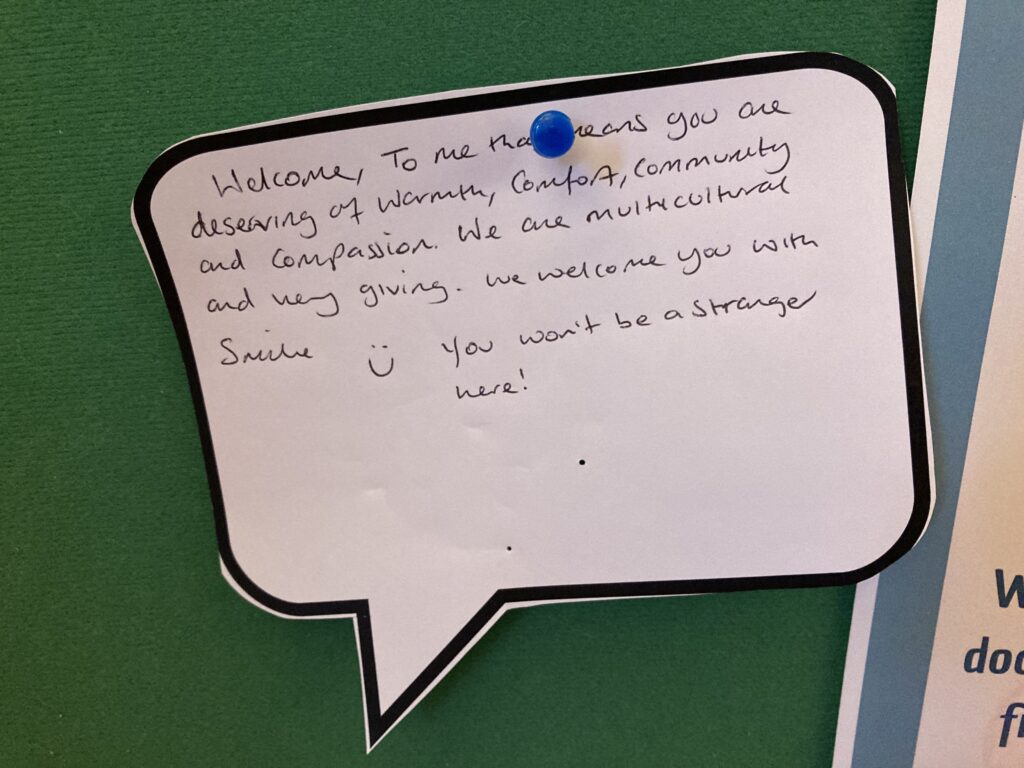 Welcome, To me that means you are
deserving of warmth, comfort, community
and compassion. We are multicultural
and very giving. We welcome you with
Smile ü You won't be a stranger
here!
W
doc
f